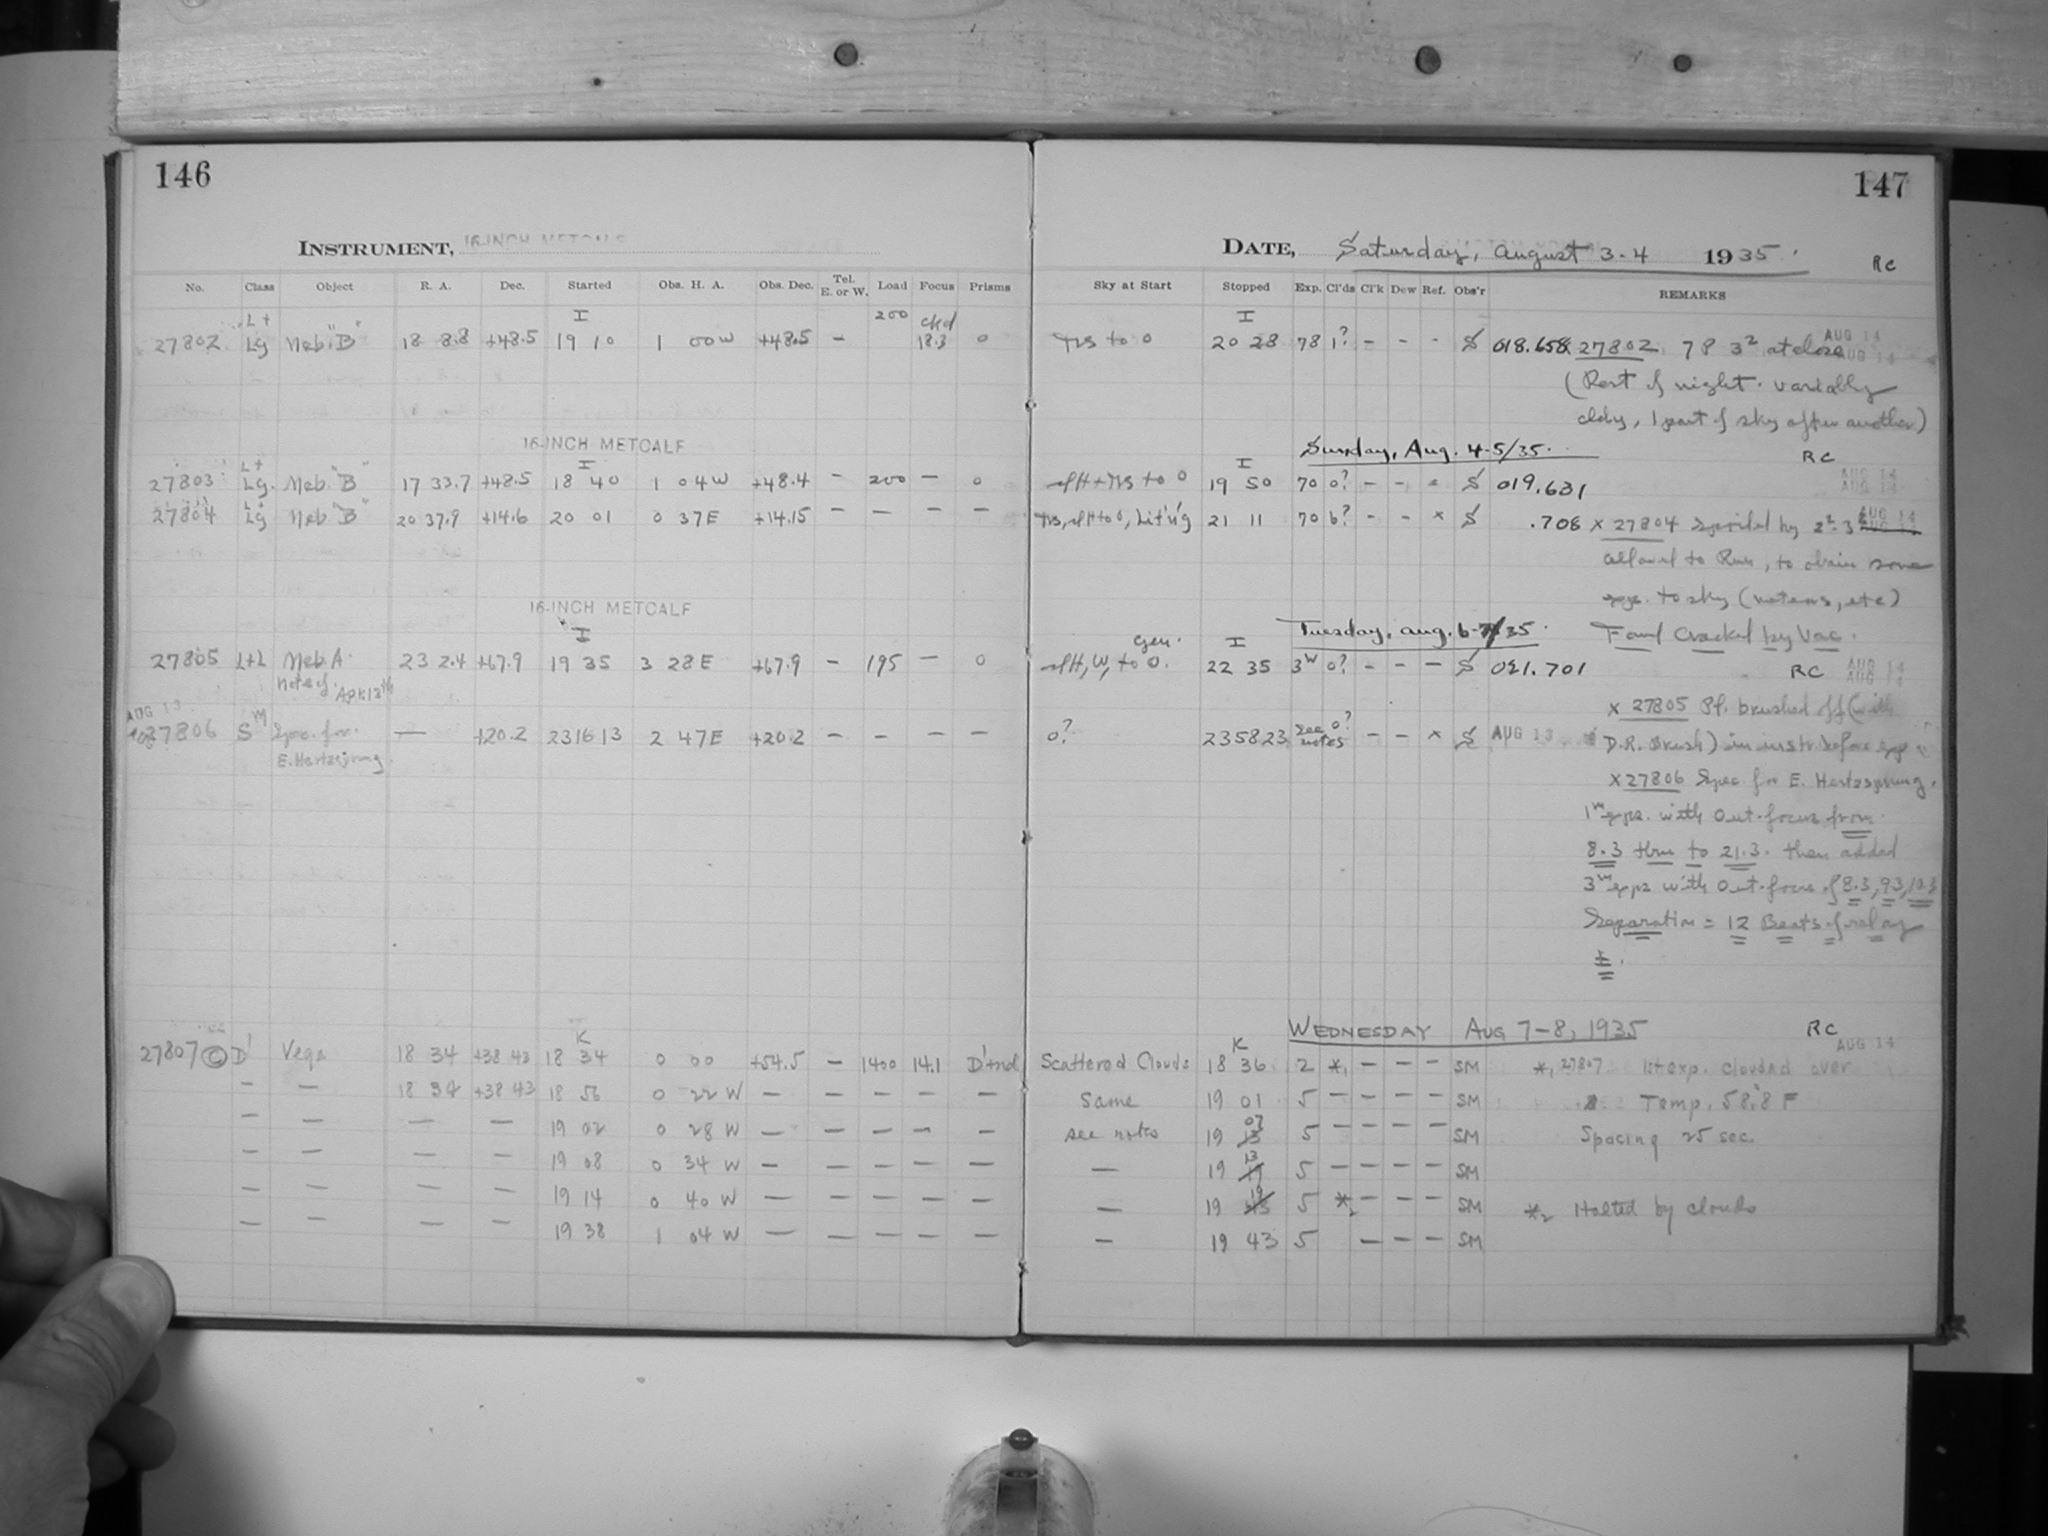 146
147
INSTRUMENT, 16-INCH METCALF
DATE, Saturday, August 3-4 1935. RC
No. Class Object R. A. Dec. Started Obs. H. A. Obs. Dec. Tel. E. or W. Load Focus Prisms
Sky at Start Stopped Exp. Cl'ds Cl'k Dew Ref. Obs'r REMARKS
27802 L+ Lg Neb. "B" 18 8.8 +48.5 I 19 10 1 00 W +48.5 — 200 ckd 18.3 0
to 0 I 20 28 78 1? - - - S 018.658 x 27802 78 3² at close AUG 14
(Rest of night variably
cldy, 1 part of sky after another)
16-INCH METCALF
Sunday, Aug. 4-5/35. RC
27803 L+ Lg. Neb. "B" 17 33.7 +48.5 I 18 40 1 04 W +48.4 - 200 — 0
to 0 I 19 50 70 0? - - - S 019.631 AUG 14
27804 L+ Lg Neb "B" 20 37.9 +14.6 20 01 0 37 E +14.15 — — — —
21 11 70 6? - - x S .708 x 27804 Spoiled by AUG 14
allowed to Run, to obtain some
exp. to sky (meteors, etc)
16-INCH METCALF
Tuesday, Aug. 6-7/35. Found Cracked by Vac.
27805 L+L Neb. A. 23 2.4 +67.9 I 19 35 3 28 E +67.9 — 195 — 0
gen. to 0. I 22 35 0? - - — S 021.701 RC AUG 14
x 27805 Pl. brushed off (with
AUG 13
27806 S Spec. for — +20.2 23 16 13 2 47 E +20.2 — — — —
0? 23 58 23 see notes 0? - - x S AUG 13 D.R. Brush) in instr. before exp
E. Hertzsprung
x 27806 Spec. for E. Hertzsprung.
1ᵐ exps. with Out-focus from
8.3 thru to 21.3. then added
3ᵐ exps with Out-focus of 8.3, 9.3, 10.3
Separation = 12 Beats of relay
±.
WEDNESDAY AUG 7-8, 1935 RC
27807 © D' Vega 18 34 +38 43 K 18 34 0 00 +54.5 — 1400 14.1 D'
Scattered Clouds K 18 36 2 *₁ — — — SM *₁ 27807 1st exp. clouded over AUG 14
— — 18 34 +38 43 18 56 0 22 W — — — — —
Same 19 01 5 — — — — SM Temp. 58.8 F
— — — — 19 02 0 28 W — — — — —
see notes 19 07 5 — — — — SM Spacing 25 sec.
— — — — 19 08 0 34 W — — — — —
— 19 13 5 — — — — SM
— — — — 19 14 0 40 W — — — — —
— 19 19 5 *₂ — — — SM *₂ Halted by clouds
— — — — 19 38 1 04 W — — — — —
— 19 43 5 — — — SM